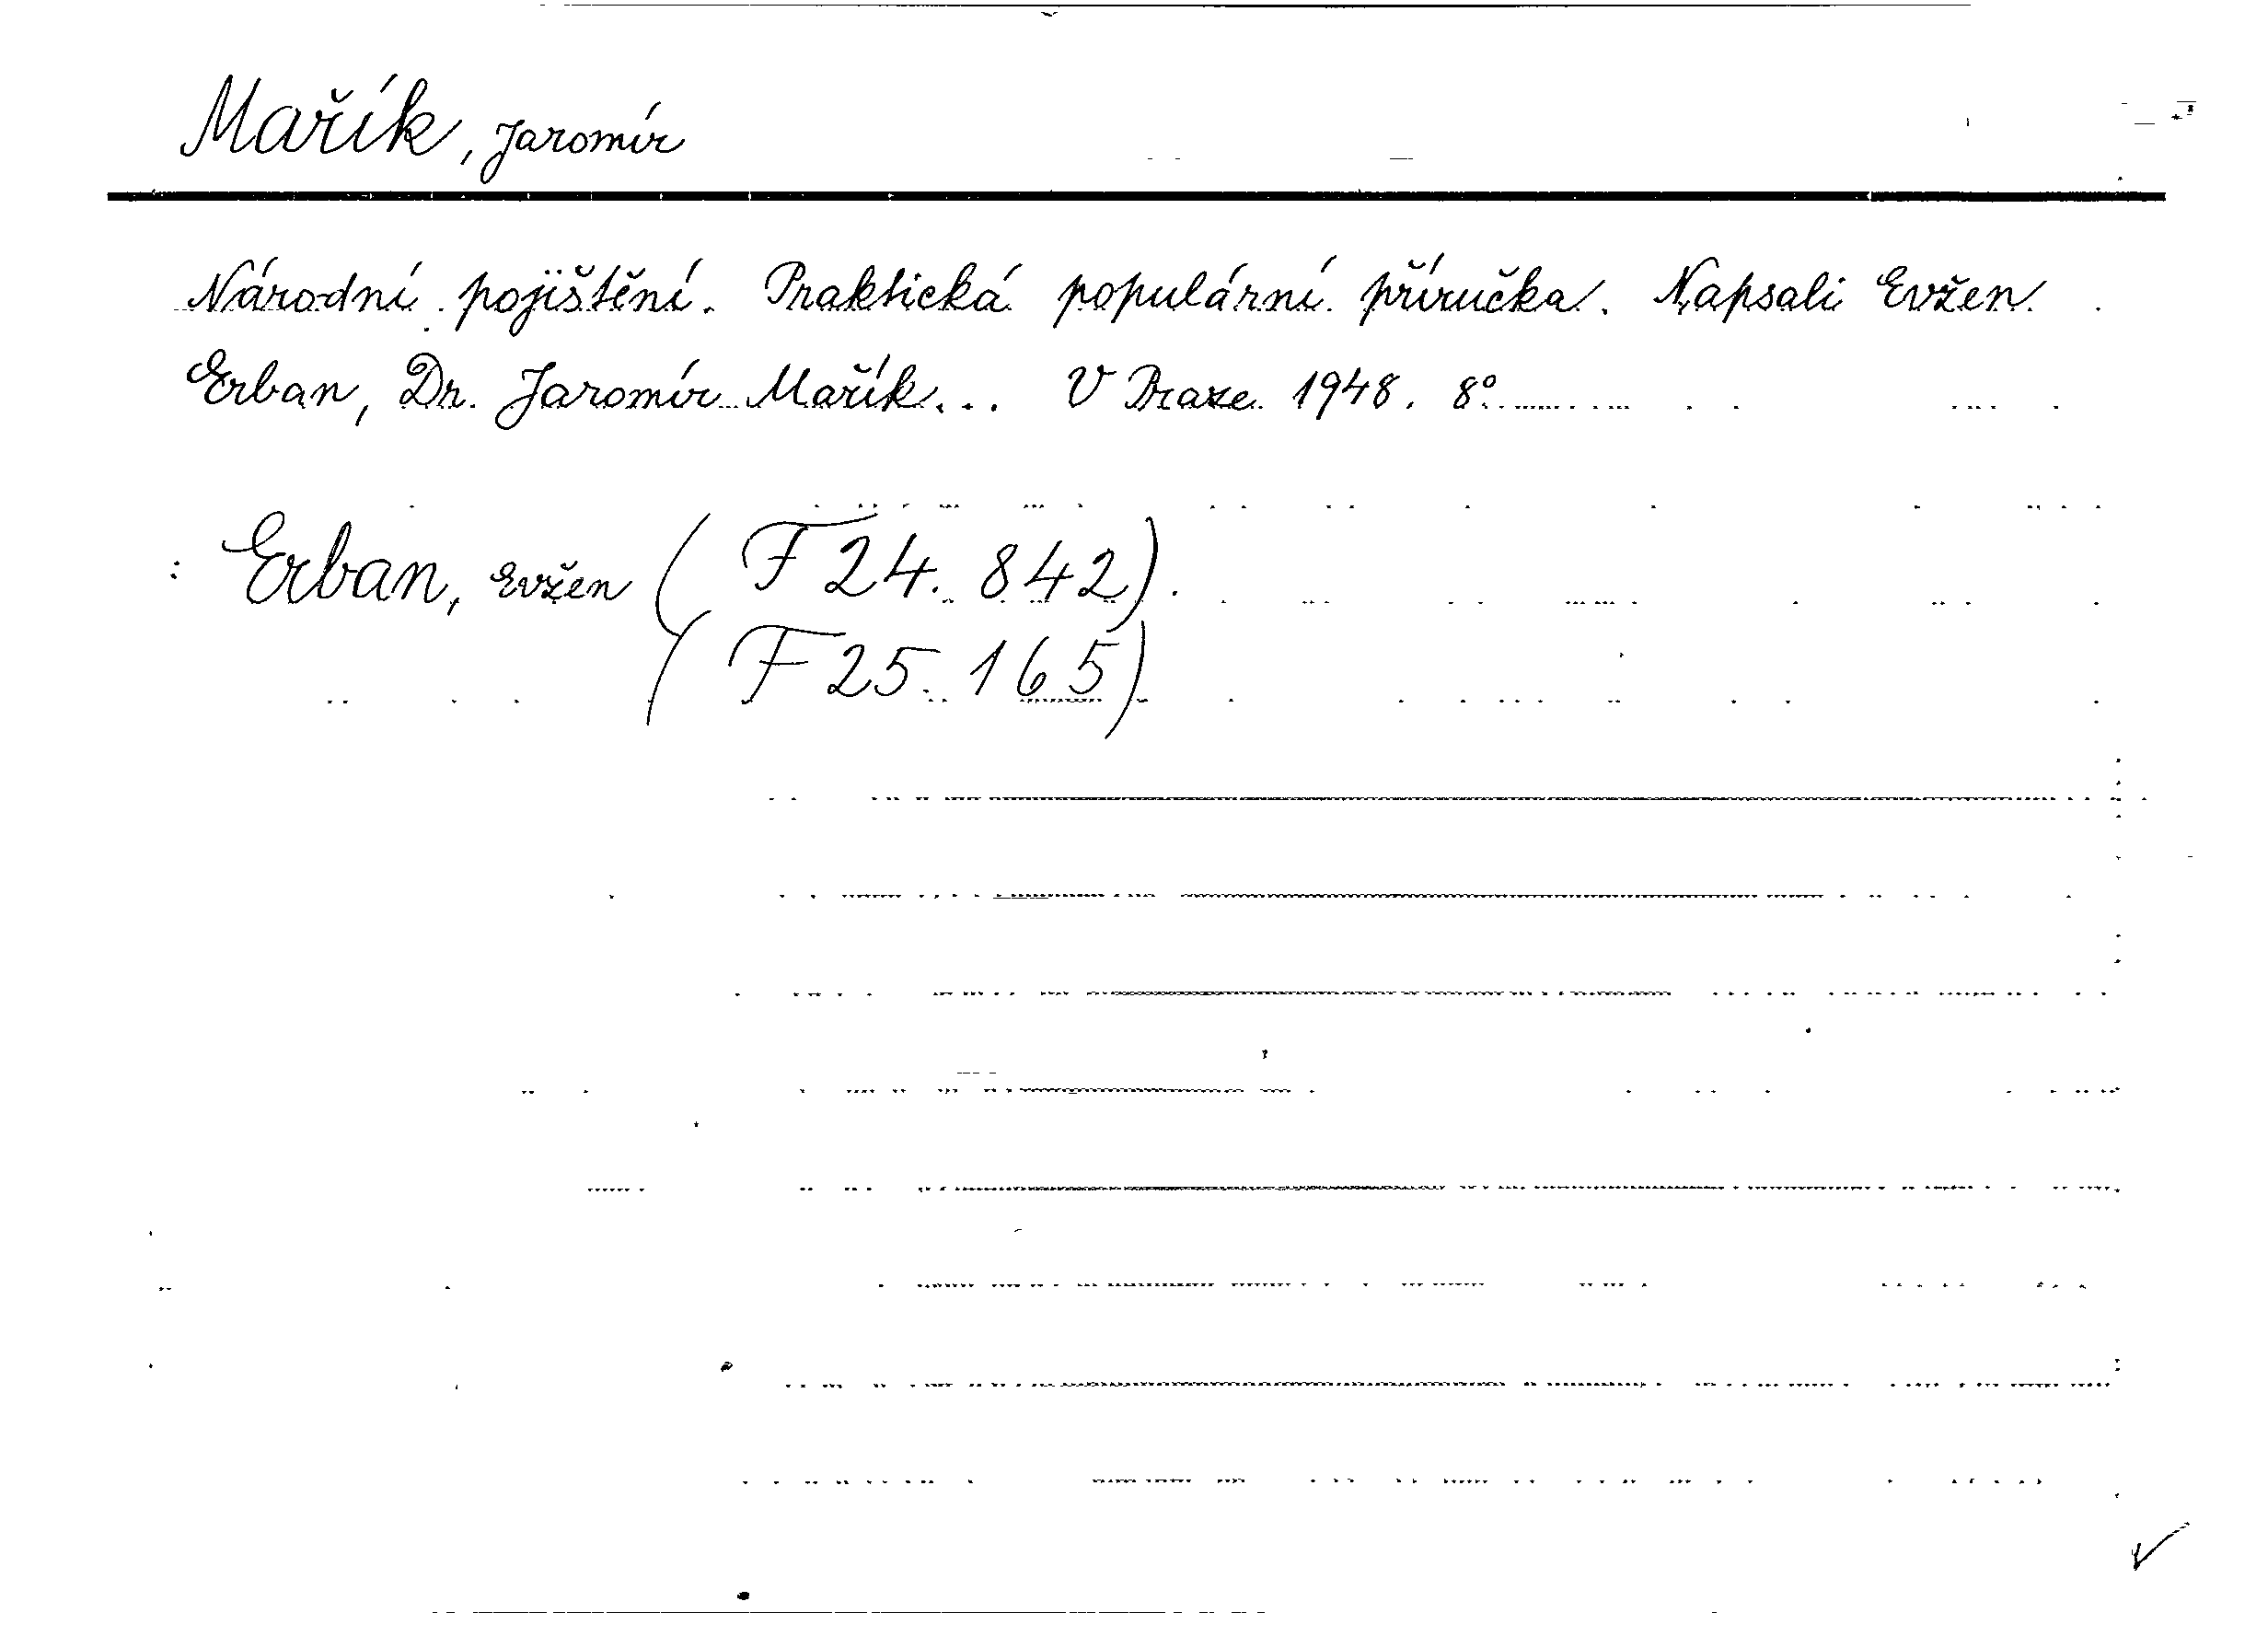 Mařík, Jaromír
Národní pojištění. Praktická populární příručka. Napsali Evžen
Erban, Dr. Jaromír Mařík... V Praze 1948. 8°
: Erban, Evžen (F 24. 842).
(F 25. 165)